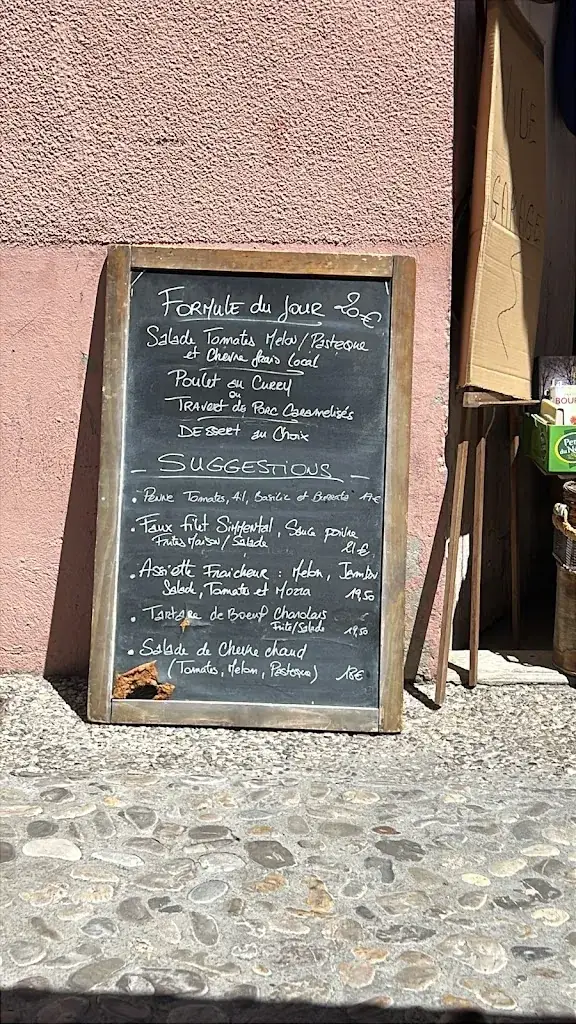 FORMULE du JOUR 20€
Salade Tomates Melon/Pasteque
et Chevre frais local
Poulet au Curry
ou
TRAVERS de PORC Caramelisés
DESSERT au Choix
SUGGESTIONS
• PENNE Tomates, Ail, Basilic et Burrata 17€
• Faux filet Simmental, Sauce poivre
Frites Maison/Salade
21€
• Assiette Fraicheur : Melon, Jambon
Salade, Tomates et Mozza 19,50
• Tartare de Boeuf Charolais
Frite/Salade 19,50
• Salade de Chevre chaud
(Tomates, Melon, Pasteque) 18€
VIDE
GARAGE
BOUR
Per
du No